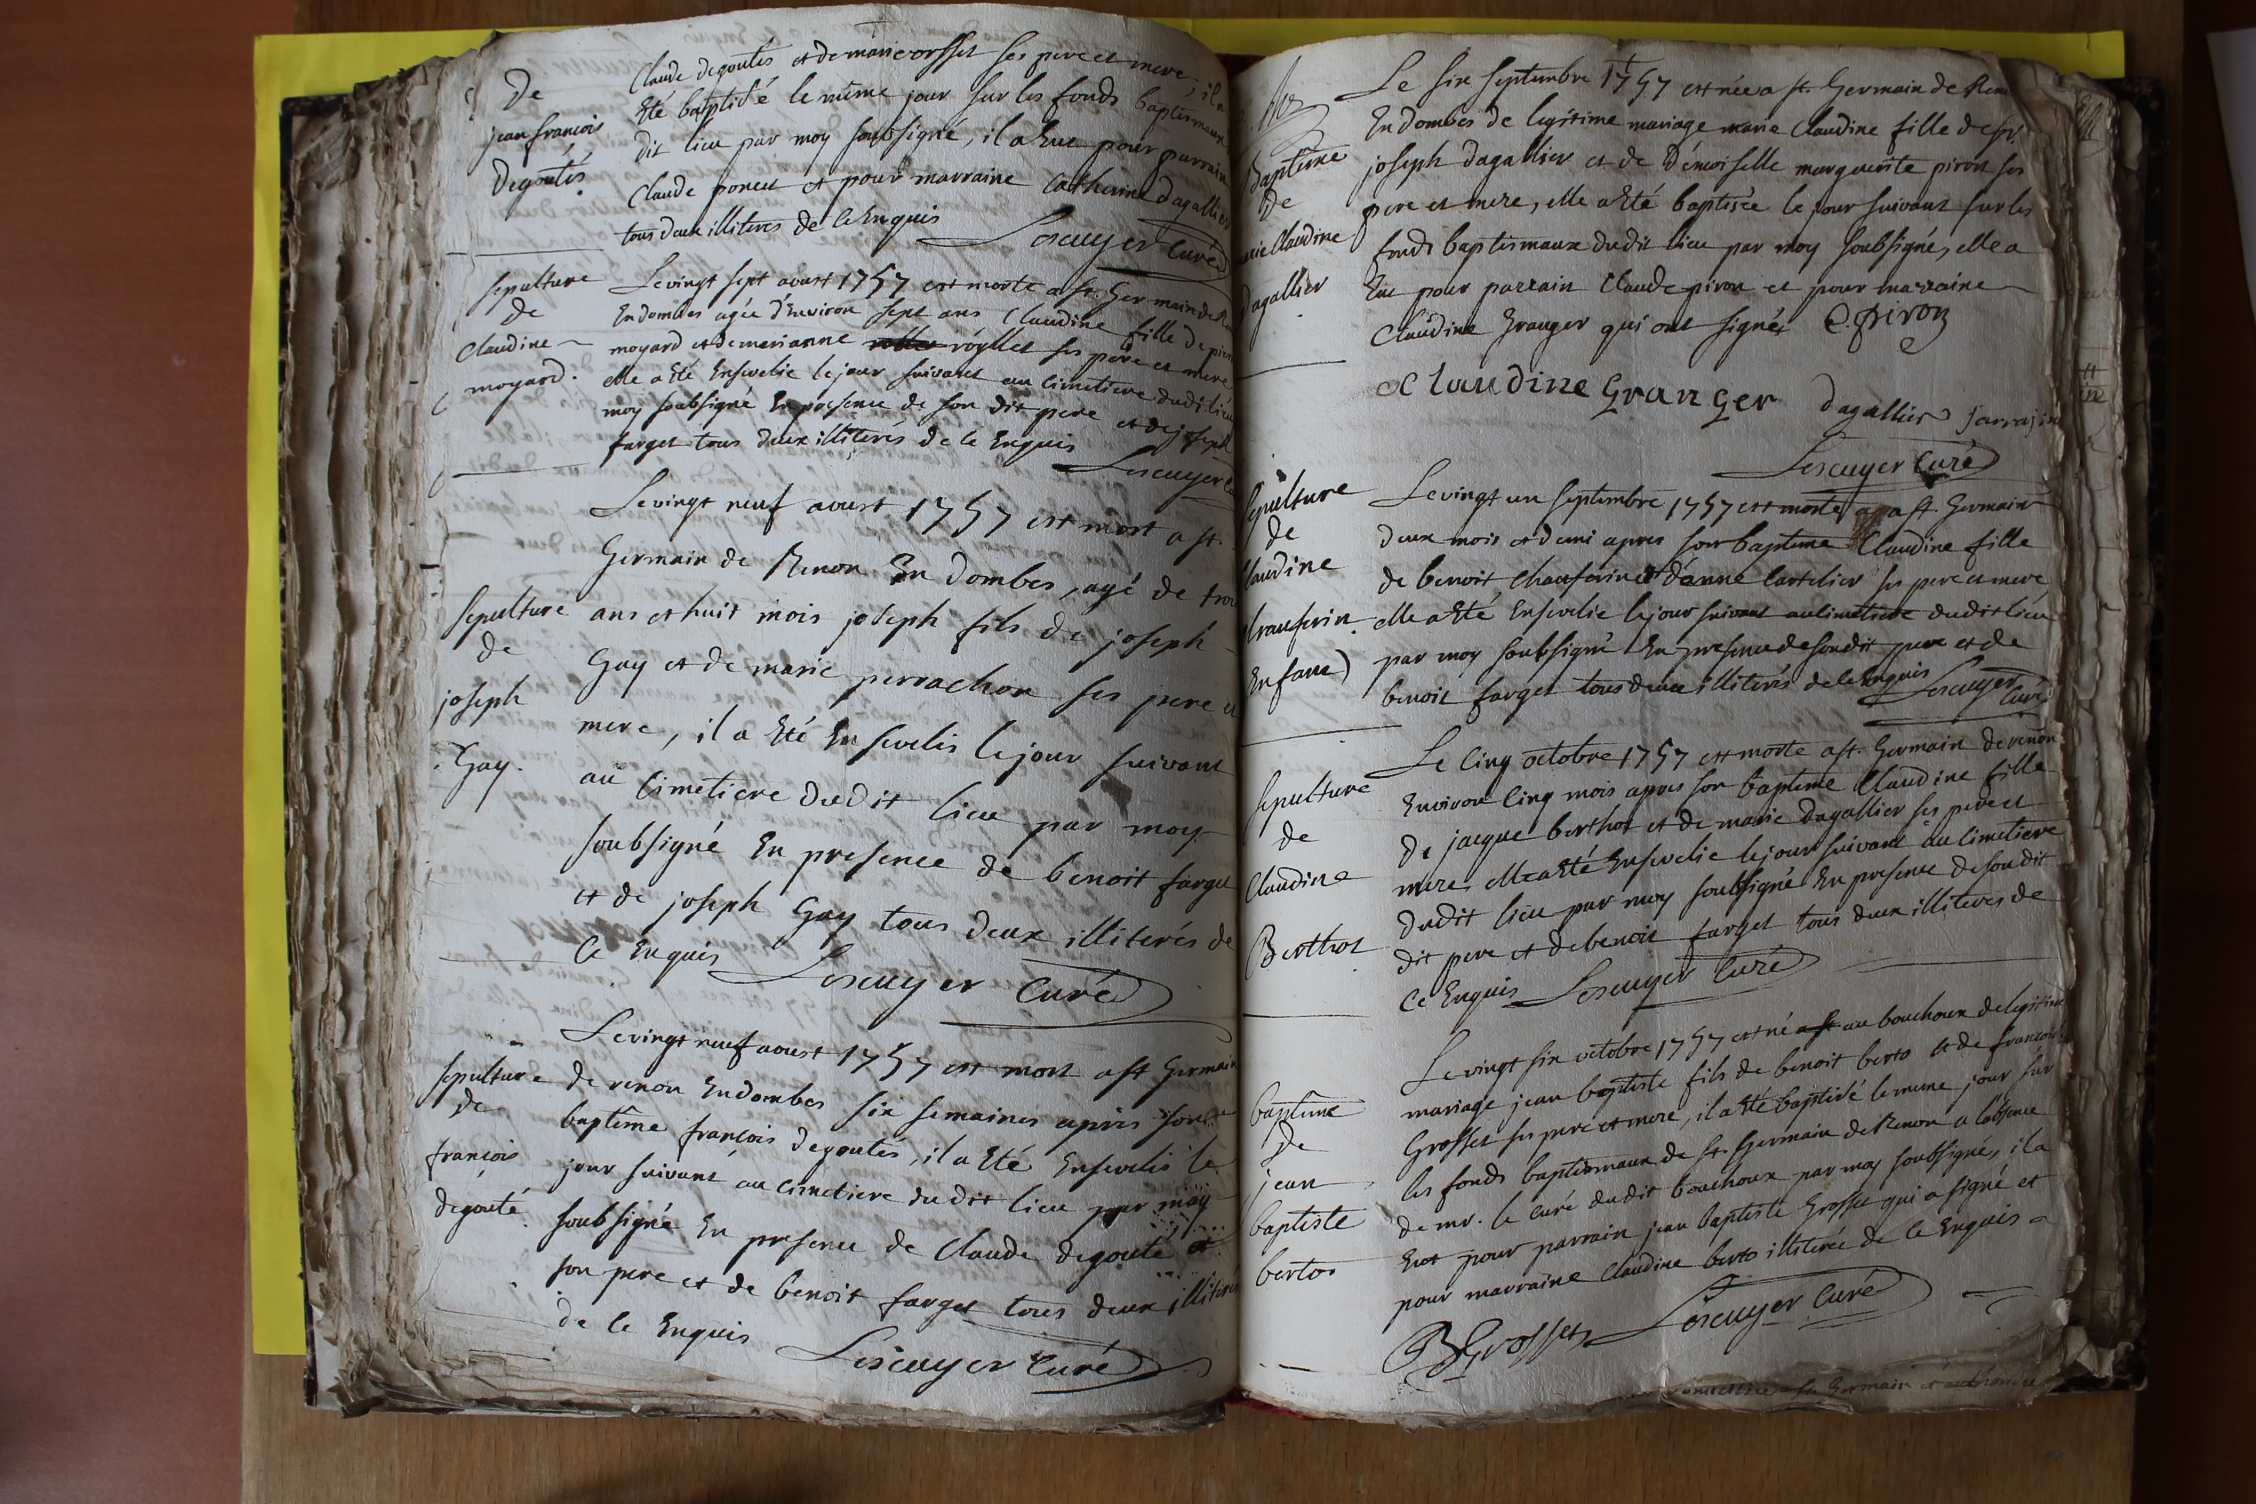 De
jean francois
Degoutés
Claude degoutés et de marie orsset ses pere et mere, il a
Eté baptisé le même jour sur les fonds baptismaux
dit lieu par moy soubsigné, il a Eut pour parrain
Claude poncet et pour marraine Catherine Dagallier
tous deux illiterés de ce Enquis
Lescuyer Curé
sepulture
de
Claudine
moyard.
Le vingt sept aoust 1757 est morte a st. Germain de Re
En dombes agée d'Environ sept ans Claudine fille de pier
moyard et de marianne royllet ses pere et mere
elle a Eté Ensevelie le jour suivant au cimetiere dudit lieu
moy soubsigné En presence de son dit pere et de joseph
farget tous deux illiterés de ce Enquis
Lescuyer
sepulture
de
joseph
Gay.
Le vingt neuf aoust 1757 est mort a st.
Germain de Renon En dombes, agé de troi
ans et huit mois joseph fils de joseph
Gay et de marie perrachon ses pere et
mere, il a Eté Ensevelis le jour suivant
au Cimetiere dudit lieu par moy
soubsigné En presence de benoit farget
et de joseph Gay tous deux illiterés de
Ce Enquis
Lescuyer Curé
sepulture
de
françois
degouté
Le vingt neuf aoust 1757 est mort a st Germain
de renon En dombes six semaines aprés son
baptême françois degoutés, il a Eté Ensevelis le
jour suivant au cimetiere du dit lieu par moy
soubsigné En presence de Claude degouté
son pere et de benoit farget tous deux illiterés
de ce Enquis
Lescuyer Curé
Baptême
De
rie Claudine
Dagallier
Le six septembre 1757 est née a st. Germain de Ren
En dombes de legitime mariage marie Claudine fille de sr.
joseph Dagallier et de Démoiselle marguerite piron ses
pere et mere, elle a Eté baptisée le jour suivant sur les
fonds baptismaux dudit lieu par moy soubsigné, elle a
Eue pour parrain Claude piron et pour marraine
Claudine Granger qui ont signés C. Piron
Claudine Granger
Dagallier
Lescuyer Curé
sepulture
de
Claudine
Chanferin
Enfant
Le vingt un septembre 1757 est morte a st. Germain
deux mois et demi apres son baptême Claudine fille
de benoit Chanferin et d'anne Cartelier ses pere et mere
elle a Eté Ensevelie le jour suivant au Cimetiere dudit lieu
par moy soubsigné En presence de son dit pere et de
benoit farget tous deux illiterés de ce Enquis
Lescuyer
Curé
sepulture
de
Claudine
Berthot
Le Cinq octobre 1757 est morte a st. Germain de renon
Environ Cinq mois apres son baptême Claudine fille
de jacque berthot et de marie Dagallier ses pere et
mere, elle a Eté Ensevelie le jour suivant au Cimetiere
dudit lieu par moy soubsigné En presence de son dit
dit pere et de benoit farget tous deux illiterés de
Ce Enquis
Lescuyer Curé
baptême
De
jean
baptiste
bertos
Le vingt six octobre 1757 est né a st au bouchoux de legitime
mariage jean baptiste fils de benoit berto et de francoise
Grosset ses pere et mere, il a Eté baptisé le meme jour sur
les fonds baptismaux de st. Germain de Renon a l'absence
de mr. le curé dudit bouchoux par moy soubsigné, il a
Eut pour parrain jean baptiste Grosset qui a signé et
pour marraine Claudine berto illiterée de ce Enquis
B Grosset
Lescuyer Curé